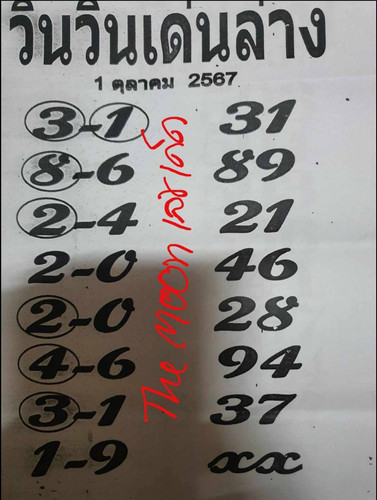 วินวินเด่นล่าง
1 ตุลาคม 2567
3-1 31
8-6 89
2-4 21
2-0 46
2-0 28
4-6 94
3-1 37
1-9 xx
The moon เลขเด็ด